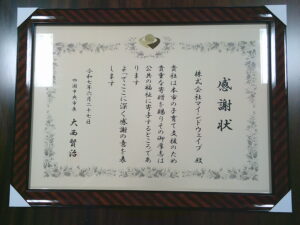 感謝状
株式会社マインドウェイブ 殿
貴社は本市の子育て支援のため
貴重な寄附を賜りその御厚志は
公共の福祉に寄与するところであ
ります
よってここに深く感謝の意を表
します
令和七年六月二十七日
四国中央市長 大西賢治